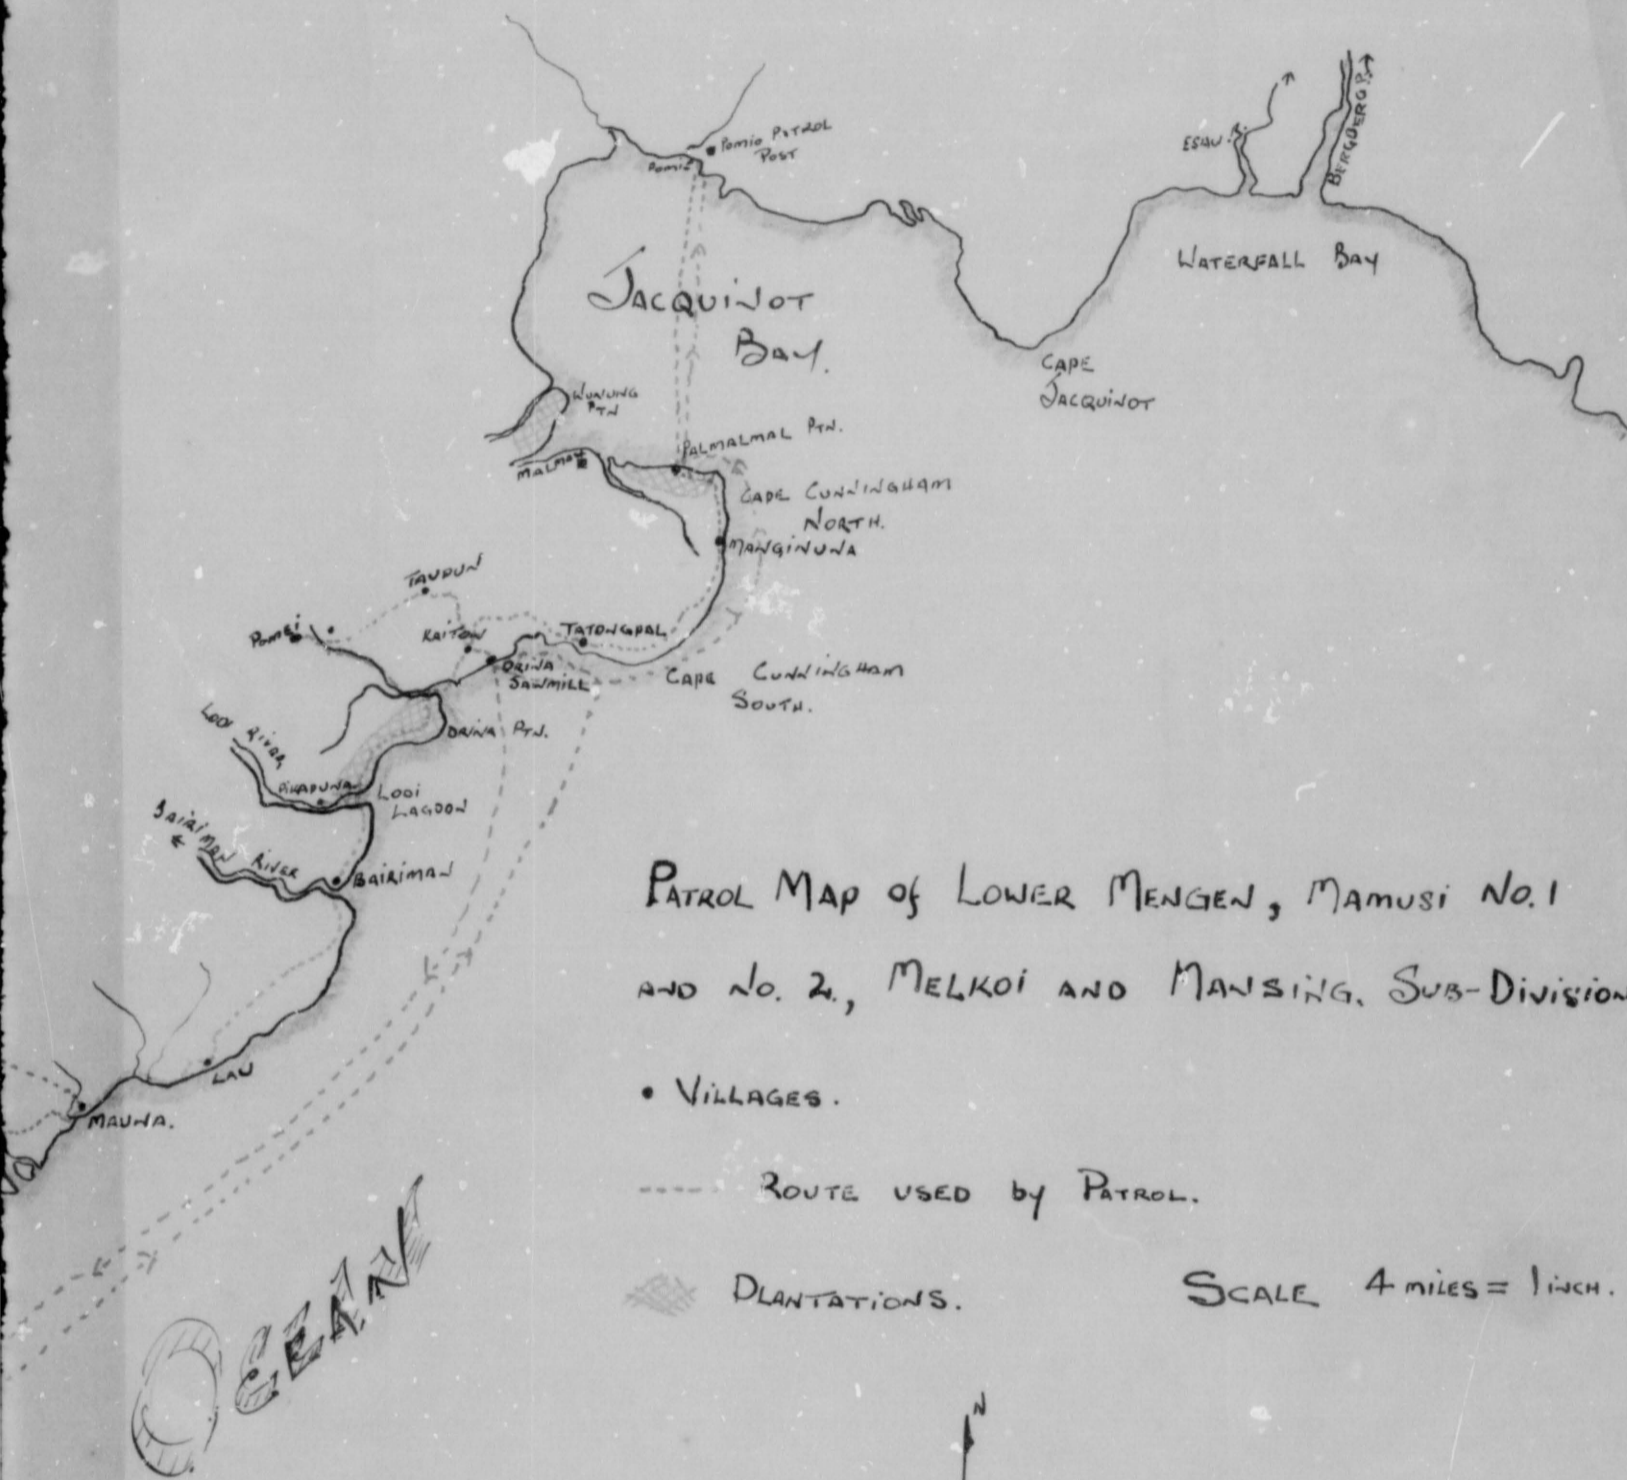 Pomio Patrol
Post
Pomio
Esau R.
Bergberg R.
Waterfall Bay
Jacquinot
Bay.
Cape
Jacquinot
Wunung
Ptn
Malmal
Palmalmal Ptn.
Cape Cunningham
North.
Manginuna
Taupun
Pomai
Kaiton
Tatongpal
Drina
Sawmill
Cape Cunningham
South.
Looi River
Drina Ptn.
Pikapuna
Looi
Lagoon
Bairiman River
Bairiman
Patrol Map of Lower Mengen, Mamusi No. 1
and No. 2., Melkoi and Mansing. Sub-Division
Lau
Villages.
Mauna.
Route used by Patrol.
Plantations.
Scale 4 miles = 1 inch.
Ocean
N